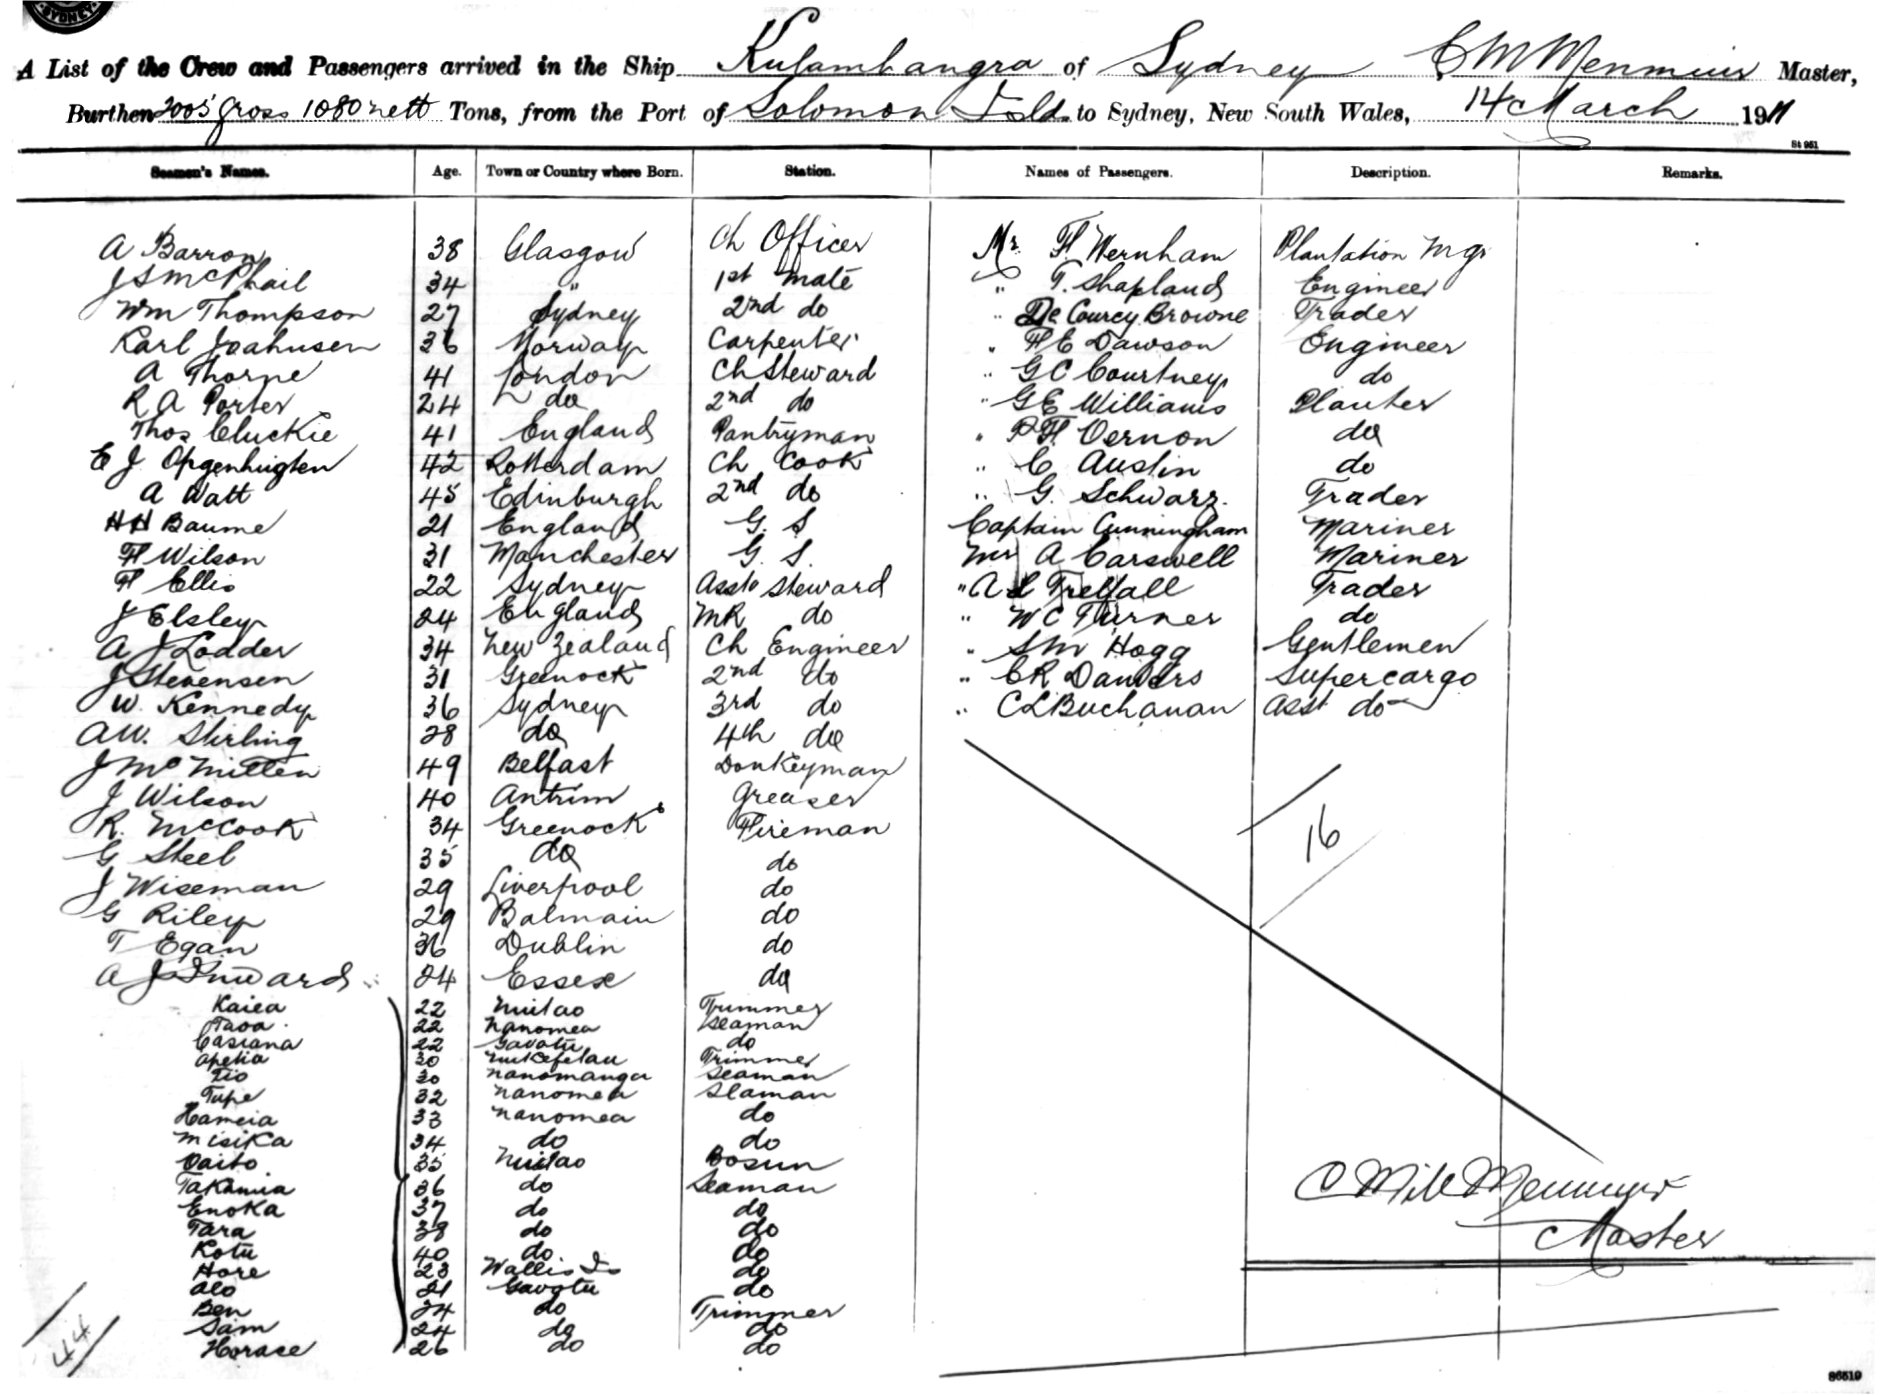 SYDNEY
A List of the Crew and Passengers arrived in the Ship Kulambangra of Sydney C M Menmuir Master,
Burthen 2005 gross 1080 nett Tons, from the Port of Solomon Islds to Sydney, New South Wales, 14 March 1911
St 951
Seamen's Names. Age. Town or Country where Born. Station. Names of Passengers. Description. Remarks.
A Barron 38 Glasgow Ch Officer Mr H. Wernham Plantation Mgr
J S McPhail 34 " 1st Mate " T. Shapland Engineer
Wm Thompson 27 Sydney 2nd do " De Courcy Browne Trader
Karl Joahnsen 36 Norway Carpenter " H E Dawson Engineer
A Thorne 41 London Ch Steward " G C Courtney do
R A Porter 24 do 2nd do " G E Williams Planter
Thos Cluckie 41 England Pantryman " P H Vernon do
E J Opgenhugten 42 Rotterdam Ch Cook " C Austin do
A Watt 45 Edinburgh 2nd do " G. Schwarz. Trader
H H Baume 21 England G. S Captain Cunningham Mariner
H Wilson 31 Manchester G. S. Mr A Carswell Mariner
H Ellis 22 Sydney Asst Steward " A L Trelfall Trader
J Elsley 24 England MR do " W C Turner do
A J Lodder 34 New Zealand Ch Engineer " S M Hogg Gentlemen
J Stevensen 31 Greenock 2nd do " C R Danvers Supercargo
W. Kennedy 36 Sydney 3rd do " C L Buchanan Asst do
A W. Stirling 28 do 4th do
J McMitten 49 Belfast Donkeyman
J Wilson 40 Antrim Greaser
R. McCook 34 Greenock Fireman
16
G Steel 35 do do
J Wiseman 29 Liverpool do
G Riley 29 Balmain do
T Egan 36 Dublin do
A J Inward 24 Essex do
Kaiea 22 Niutao Trimmer
Taoa 22 Nanomea Seaman
Casiana 22 Gavotu do
Apelia 30 Nukefetau Trimmer
Tio 30 Nanomanga Seaman
Tupe 32 Nanomea Seaman
Hameia 33 Nanomea do
Misika 34 do do
Vaito 35 Niutao Bosun
Takanua 36 do Seaman
C Mill Menmuir
Enoka 37 do do
Tara 38 do do
Master
Kotu 40 do do
Hore 23 Wallis Is do
Alo 21 Gavotu do
Ben 24 do Trimmer
Sam 24 do do
Horace 26 do do
44
86519